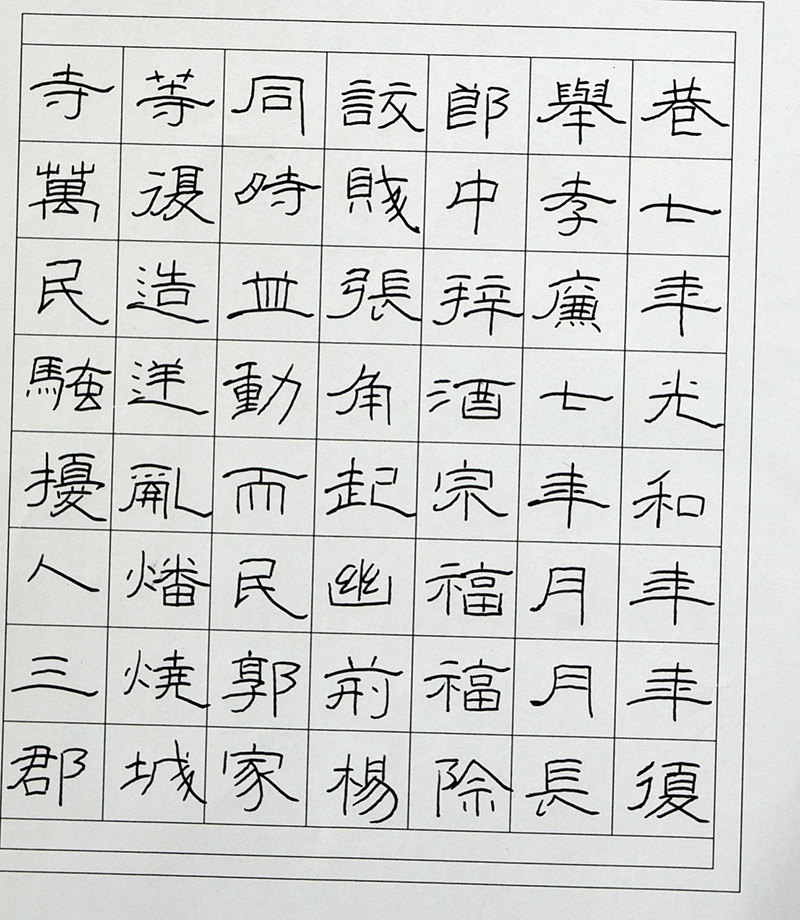 巷七年光和年年復
舉孝廉七年月月長
郎中拜酒宗福福除
訞賊張角起幽荊楊
同時並動而民郭家
等復造逆亂燔燒城
寺萬民騷擾人三郡